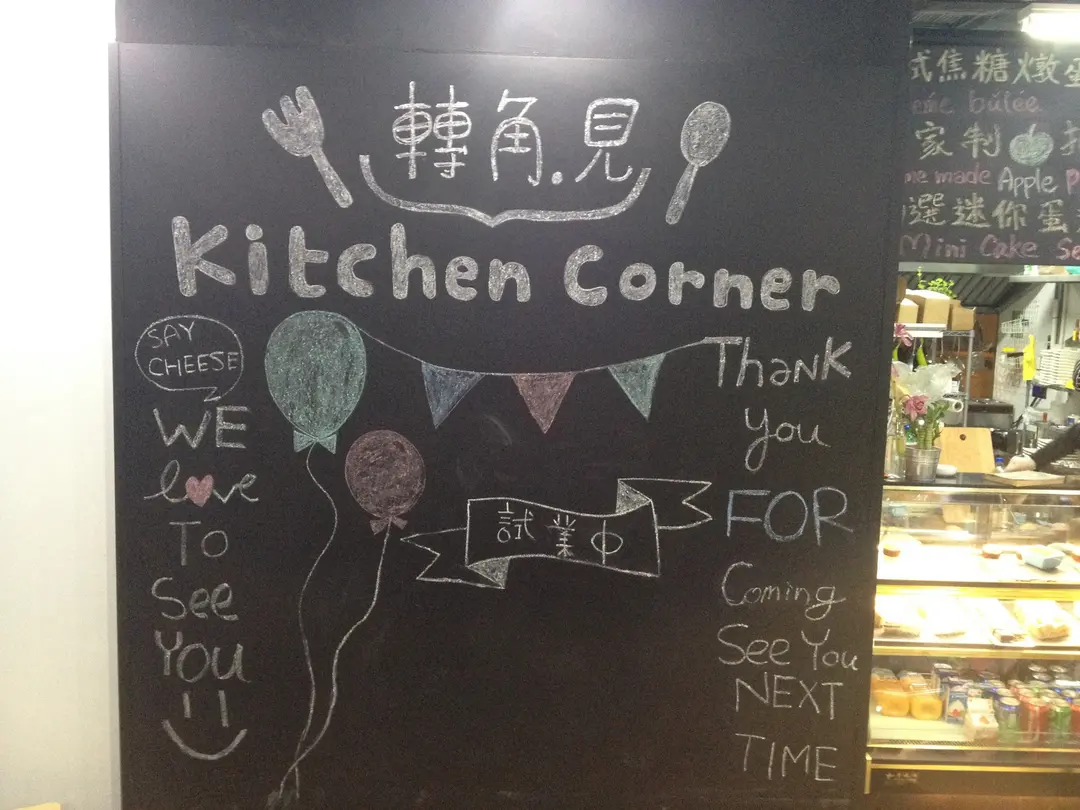 轉角.見
Kitchen Corner
SAY
CHEESE
WE
love
To
See
You
試業中
Thank
you
FOR
Coming
See You
NEXT
TIME
式焦糖燉蛋
búlée
家制
made Apple
選迷你蛋
Mini Cake Se